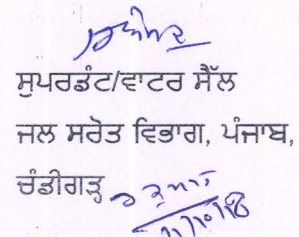 ਸੁਪਰਡੰਟ/ਵਾਟਰ ਸੈੱਲ
ਜਲ ਸਰੋਤ ਵਿਭਾਗ, ਪੰਜਾਬ,
ਚੰਡੀਗੜ੍ਹ